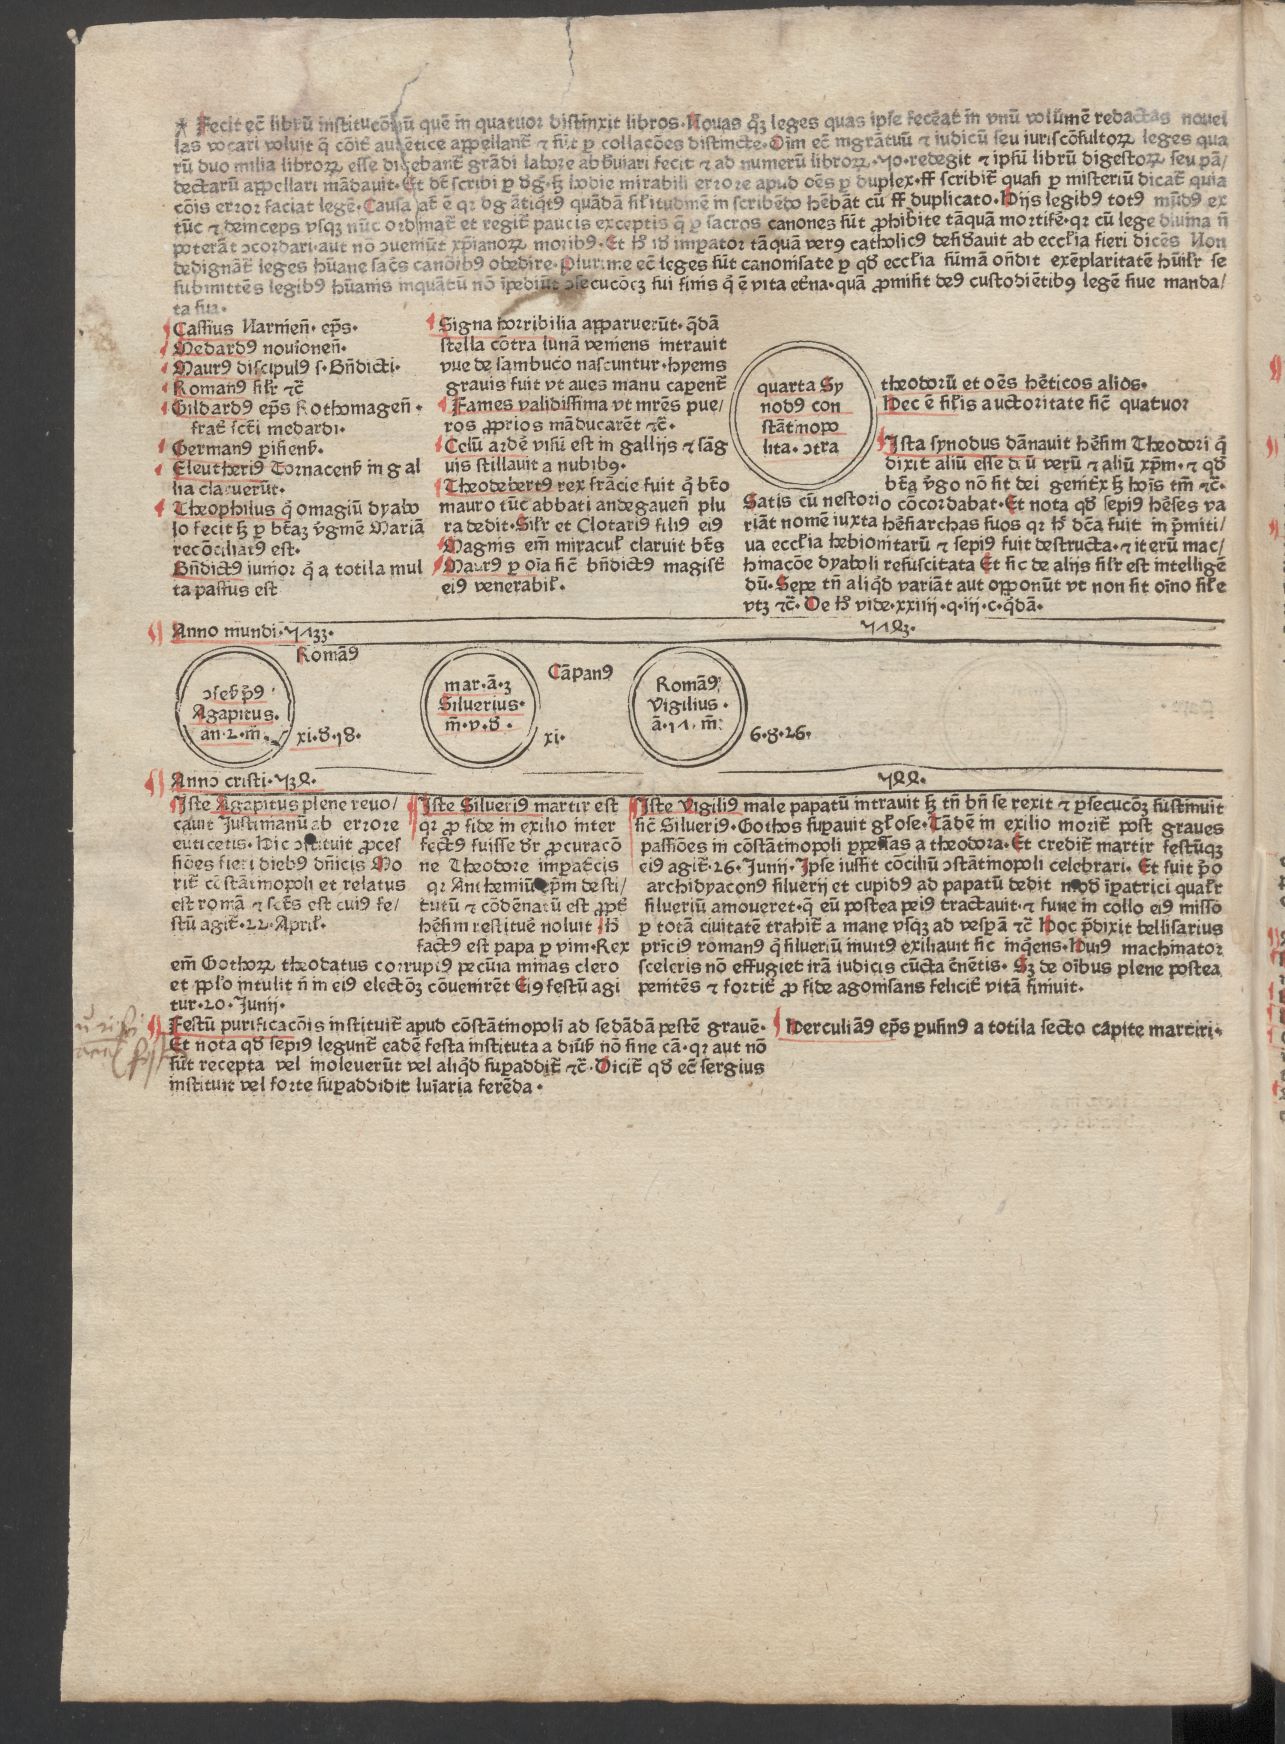 Fecit ec̄ libꝝū institucōnū quē in quatuor distinxit libros. Nouas qꝫ leges quas ipse fecēat in vnū volumē redactas novel
las vocari voluit q̄ cōit autētice appellant̄ ⁊ sūt ꝑ collacōes distincte. Oīm ec̄ mgrātuū ⁊ iudicū seu iuriscōsultoꝝ leges qua
rū duo milia libroꝝ esse dicebant̄ grādi labore abbꝛuiari fecit ⁊ ad numerū libroꝝ .50. redegit ⁊ ipsū librū digestoꝝ seu pā/
dectarū appellari mādauit. Et dr̄ scribi ꝑ dḡ. ꝫ hodie mirabili errore apud oēs ꝑ duplex. ff scribit̄ quasi ꝑ misteriū dicat̄ quia
cōis error faciat legē. Causa at̄ ē qꝛ dg āt̄iqt9 quādā sil̄itudinē in scribēdo hēbāt cū ff duplicato. Hijs legib9 tot9 mūd9 ex
tūc ⁊ deinceps vsqꝫ nūc ordinat̄ et regit̄ paucis exceptis q̄ ꝑ sacros canones sūt ꝓhibite tāquā mortifē. qꝛ cū lege diuina n̄
poterāt ɔcordari. aut nō ɔueniūt xp̄ianoꝝ morib9. Et ħ id̄ impator tāquā ver9 catholic9 desid̄auit ab eccl̄ia fieri dicēs Non
dedignāt̄ leges hūane sac̄s canōib9 obedire. Plurime ec̄ leges sūt canonisate ꝑ qd̄ eccl̄ia sūmā on̄dit exēplaritatē hūil̄r se
submittēs legib9 hūanis inquātū nō īpediūt ɔsecucōꝫ sui finis q̄ ē vita et̄na. quā ꝓmisit de9 custodiētib9 legē siue manda/
ta sua.
Cassius Narnien̄. ep̄s.
Medard9 nouionen̄.
Maur9 discipul9 s. Bn̄dicti.
Roman9 sil̄r ⁊c̄
Gildard9 ep̄s Rothomagen̄.
frat̄ sct̄i medardi.
German9 ꝑisienẜ.
Eleutheri9 Tornacenẜ in gal
lia claruerūt.
Theophilus q̄ omagiū dyabo
lo fecit ꝫ ꝑ bt̄aꝫ v̄gīnē Mariā
recōciliat9 est.
Bn̄dict9 iunior q̄ a totila mul
ta passus est
Signa horribilia apparuerūt. q̄dā
stella cōtra lunā veniens intrauit
vue de sambuco nascuntur. hyems
grauis fuit vt aues manu capent̄
Fames validissima vt mr̄es pue/
ros ꝓprios māducarēt ⁊c̄.
Celū ardē visū est in gallijs ⁊ sāg
uis stillauit a nubib9.
Theodebert9 rex frācie fuit q̄ bt̄o
mauro tūc abbati andegauen̄ plu
ra dedit. Sil̄r et Clotari9 fili9 ei9
Magnis em̄ miracul̄ claruit bt̄s
Maur9 ꝑ oīa sic̄ bn̄dict9 magist̄
ei9 venerabil̄.
quarta Sy
nod9 con
stātinopo
lita. ɔtra
theodorū et oēs hēticos alios.
Hec ē sil̄is auctoritate sic̄ quatuor
Ista synodus dānauit hēsim Theodori q̄
dixit aliū esse deū verū ⁊ aliū xp̄m. ⁊ qd̄
bt̄a v̄go nō sit dei genit̄x ꝫ hoīs tm̄ ⁊c̄.
Satis cū nestorio cōcordabat. Et nota qd̄ sepi9 hēses va
riāt nomē iuxta hēsiarchas suos qꝛ ħ dc̄a fuit in p̄miti/
ua eccl̄ia hebionitarū ⁊ sepi9 fuit destructa. ⁊ iterū mac/
hinacōe dyaboli resuscitata Et sic de alijs sil̄r est intelligē
dū. Sepe tn̄ aliqd̄ variāt aut opponūt vt non sit oīno sil̄e
vtꝫ ⁊c̄. De ħ vide. xxiiij. q. iij. c. q̄dā.
Anno mundi. 5733.
5743.
ɔseẜp̄9
Agapitus.
an. 2. m̄.
Romā9
xi. d. 18.
mar. ā. 3
Siluerius.
m̄. v. d.
Cāpan9
xi.
Romā9
Vigilius.
ā. 17. m̄.
6. d. 26.
Anno cristi. 534.
544.
Iste Agapitus plene reuo/
cauit Justinianū ab errore
euticetis. Hic ɔstituit ꝓces
siōes fieri dieb9 dn̄icis Mo
rit̄ cōstātinopoli et relatus
est romā ⁊ sct̄s est cui9 fe/
stū agit̄. 22. April̄.
Iste Silueri9 martir est
qꝛ ꝓ fide in exilio inter
fect9 fuisse dr̄ ꝓcuracō
ne Theodore impat̄cis
qꝛ Anthemiū ep̄m desti/
tutū ⁊ cōdēnatū est ꝓpt̄
hēsim restitue noluit Iħ
fact9 est papa ꝑ vim. Rex
em̄ Gothoꝝ theodatus corrupt9 pecūia minas clero
et pp̄lo intulit n̄ in ei9 electōꝫ cōuenirēt Ei9 festū agi
tur. 20. Junij.
Iste Vigili9 male papatū intrauit ꝫ tn̄ bn̄ se rexit ⁊ ꝑsecucōꝫ sustinuit
sic̄ Silueri9. Gothos supauit gl̄ose. Tādē in exilio morit̄ post graues
passiōes in cōstātinopoli ꝑpessas a theodora. Et credit̄ martir festūqꝫ
ei9 agit̄. 26. Junij. Ipse iussit cōciliū ɔstātinopoli celebrari. Et fuit p̄o
archidyacon9 siluerij et cupid9 ad papatū dedit mod īpatrici qual̄r
silueriū amoueret. q̄ eū postea peī9 tractauit. ⁊ fune in collo ei9 misso
ꝑ totā ciuitatē trahit̄ a mane vsqꝫ ad vesꝑā ⁊c̄ Hoc p̄dixit bellisarius
prīci9 roman9 q̄ silueriū inuit9 exiliauit sic inq̄ens. Hui9 machinator
sceleris nō effugiet irā iudicis cūcta c̄nētis. Sꝫ de oībus plene postea
penitēs ⁊ fortit̄ ꝓ fide agonisans felicit̄ vitā finiuit.
Festū purificacōis instituit̄ apud cōstātinopolī ad sedādā pestē grauē.
Et nota qd̄ sepi9 legunt̄ eadē festa instituta a diūẜ nō sine cā. qꝛ aut nō
sūt recepta vel inoleuerūt vel aliqd̄ supaddit̄ ⁊c̄. Dicit̄ qd̄ ec̄ sergius
instituit vel forte supaddidit luīaria ferēda.
Herculiā9 ep̄s ꝑusin9 a totila secto capite martiri.